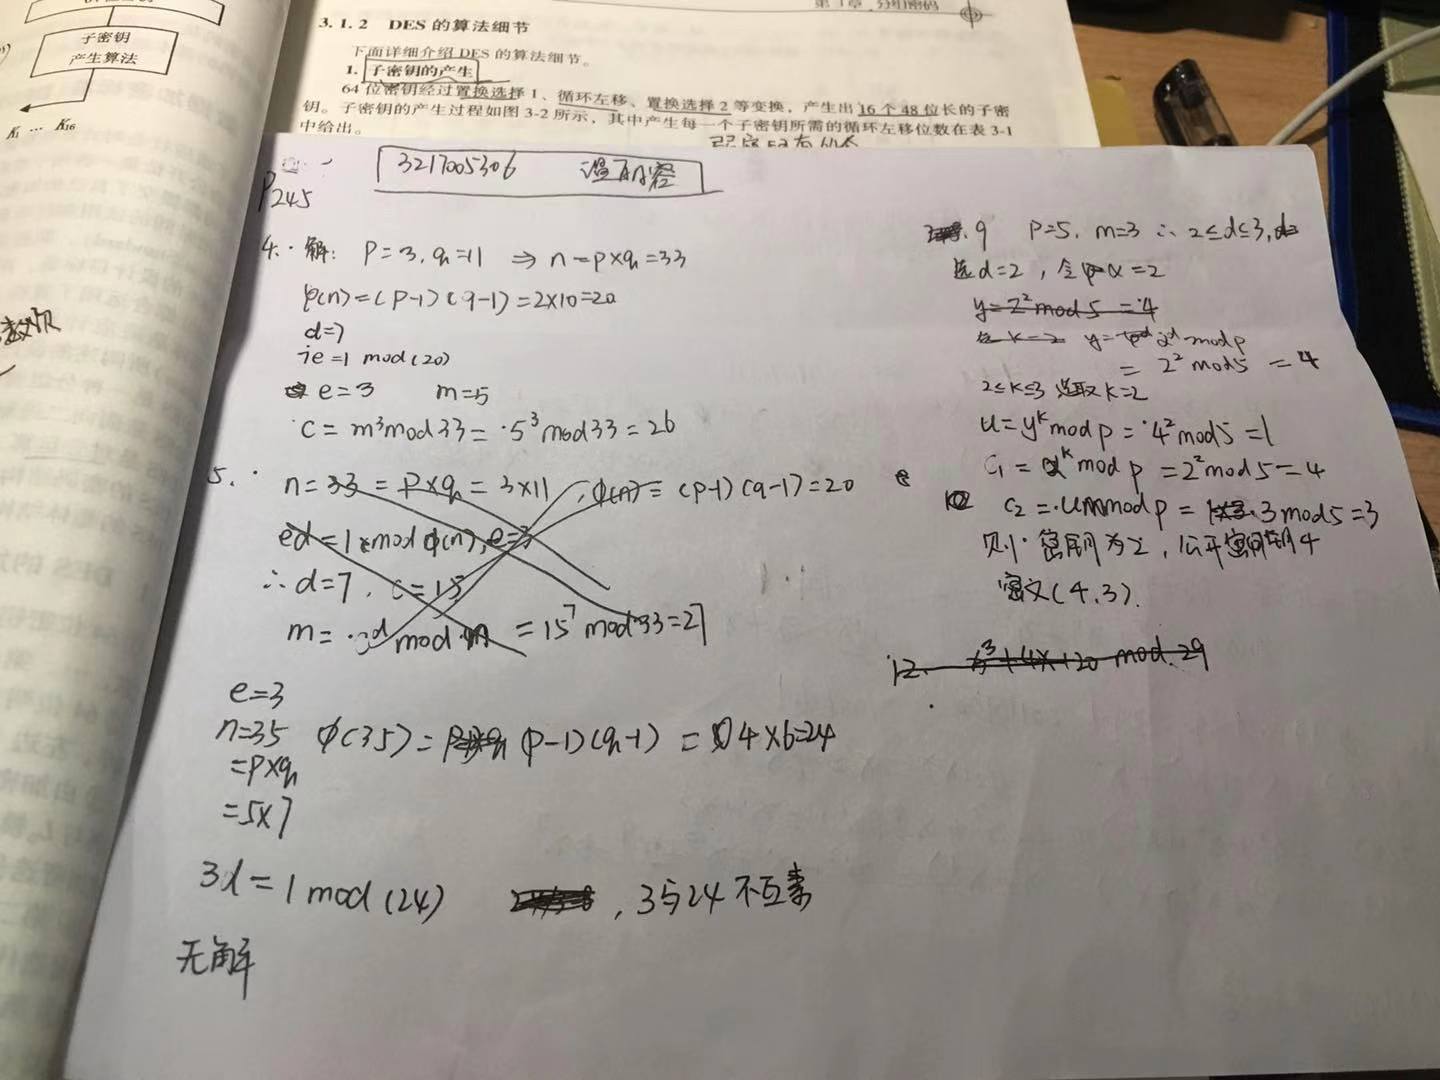 子密钥
产生算法
K1 … K16
3.1.2 DES 的算法细节
下面详细介绍 DES 的算法细节。
1. 子密钥的产生
64 位密钥经过置换选择 1、循环左移、置换选择 2 等变换，产生出 16 个 48 位长的子密
钥。子密钥的产生过程如图 3-2 所示，其中产生每一个子密钥所需的循环左移位数在表 3-1
中给出。
3217005306 温丽容
P245
4. 解: P=3, q=11 ⇒ n=p×q=33
φ(n)=(P-1)(q-1)=2×10=20
d=7
7e=1 mod(20)
e=3 m=5
C=m³mod33=5³mod33=26
5.
n=33=p×q=3×11, φ(n)=(p-1)(q-1)=20
ed=1 mod φ(n), e=3
∴d=7, c=15
m= mod =15⁷mod33=27
e=3
n=35 φ(35)= (p-1)(q-1)=4×6=24
=p×q
=5×7
3d=1 mod(24) , 3与24不互素
无解
9 P=5, m=3 ∴2≤d≤3,
选d=2, 令α=2
y=2²mod5=4
k=2 y=2ᵈmodp
=2²mod5=4
2≤k≤3 选取k=2
u=yᵏmodp=4²mod5=1
C₁=αᵏmodp=2²mod5=4
C₂=um modp= 3mod5=3
则 密钥为2, 公开密钥4
密文(4,3).
12. x³+4x+20 mod 29